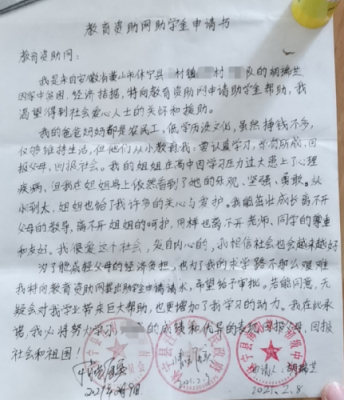 教育资助网助学生申请书
教育资助网:
我是来自安徽省黄山市休宁县 村镇 村 队的胡瑞兰
因家中贫困,经济拮据,特向教育资助网申请助学生帮助,我
渴望得到社会爱心人士的关怀和援助。
我的爸爸妈妈都是农民工,低学历没文化。虽然挣钱不多,
仅够维持生活,但他们从小教我,要认真学习,长
父母,回报社会。我的姐姐在高中因学习压力过大患上心理
疾病,但我在姐姐身上依然看到了她的乐观、坚强、勇敢。从
小到大,姐姐也给了我许多的关心与爱护。我能茁壮成长离不开
父母的教导,离不开姐姐的呵护,同样也离不开老师、同学的尊重
和友好。我很爱这个社会,发自内心的,我相信社会也会越来越好
为了能减轻父母的经济负担,也为了我的求学路不那么艰难
我特向教育资助网提出助学生申请请求,希望给予审批。若能同意,无
疑会对我学业带来巨大帮助,也更增加了我学习的动力。我在此承
诺,我必将努力学习 的成绩和优异的表现回报父母,回报
社会和祖国!
申请人:胡瑞兰
2021.2.8.